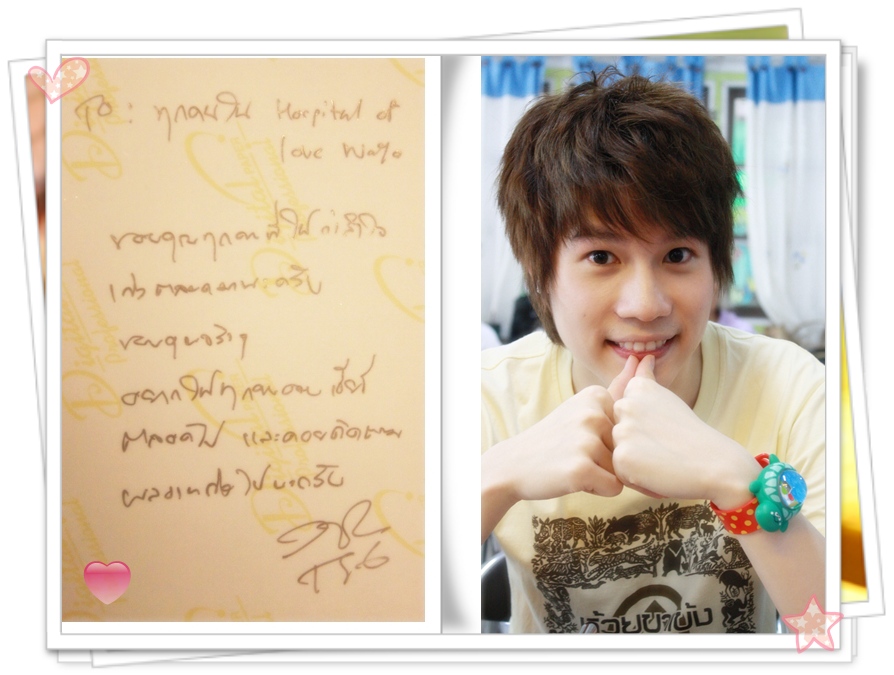 To : ทุกคนใน Hospital of
love Wayo
ขอบคุณทุกคนที่ให้กำลังใจ
เสมอมานะครับ
ขอบคุณจริงๆ
อยากให้ทุกคนคอยเชียร์
ตลอดไป และคอยติดตาม
ผลงานต่อไปนะครับ
ห้วยขาแข้ง